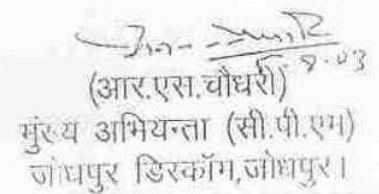 8-03
(आर.एस.चौधरी)
मुख्य अभियन्ता (सी.पी.एम)
जोधपुर डिस्कॉम,जोधपुर।